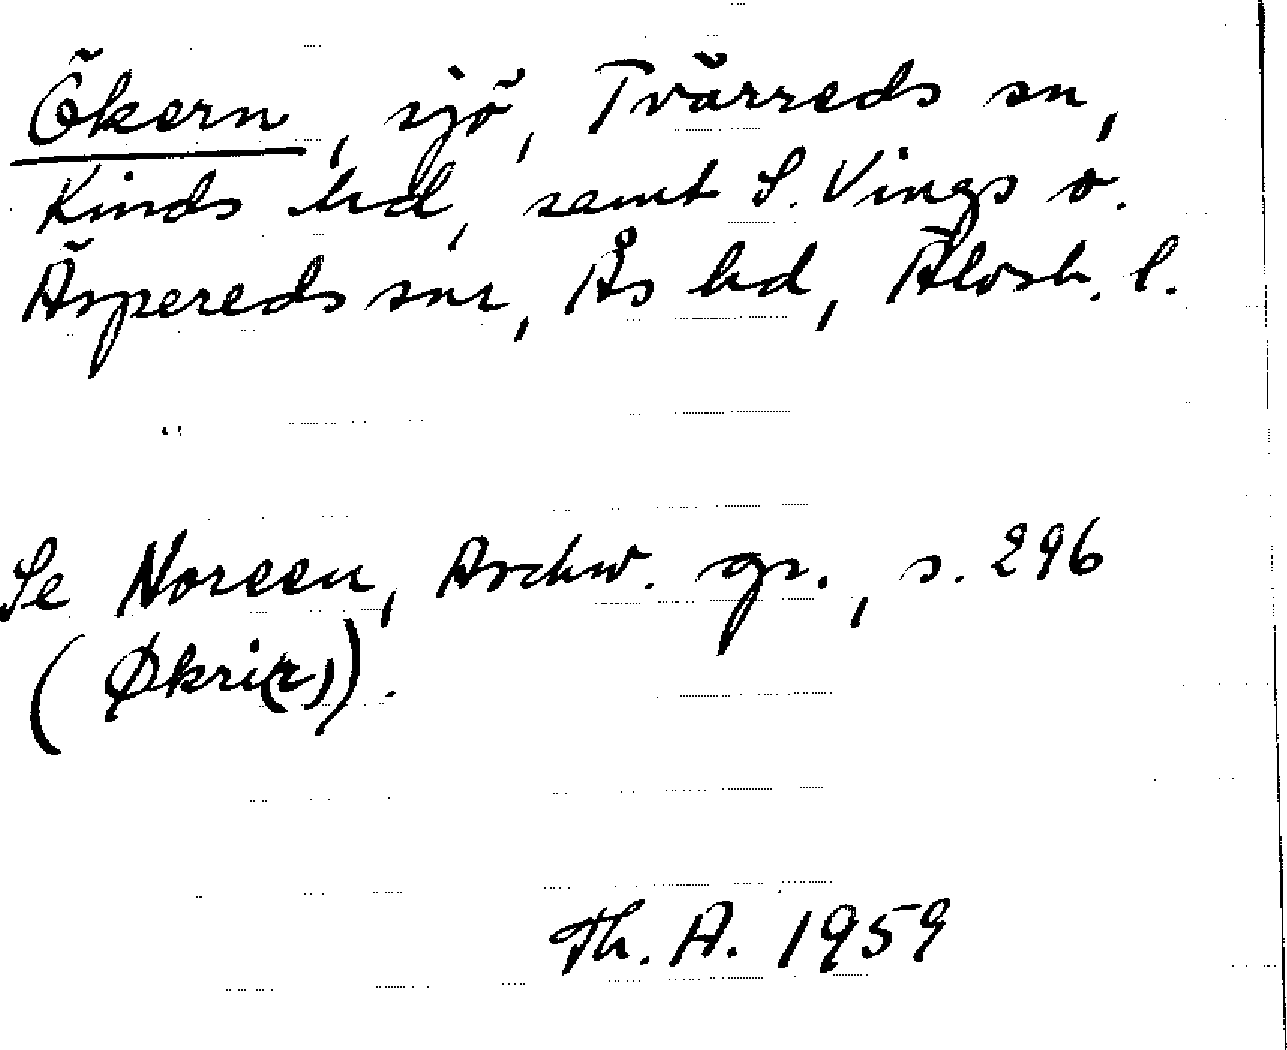 Ökern, sjö, Tvärreds sn,
Kinds hd, samt S. Vings o.
Äspereds snr, Ås hd, Älvsb. l.
Se Noreen, Aschw. gr., s. 296
(Økri(r)).
Th. A. 1959